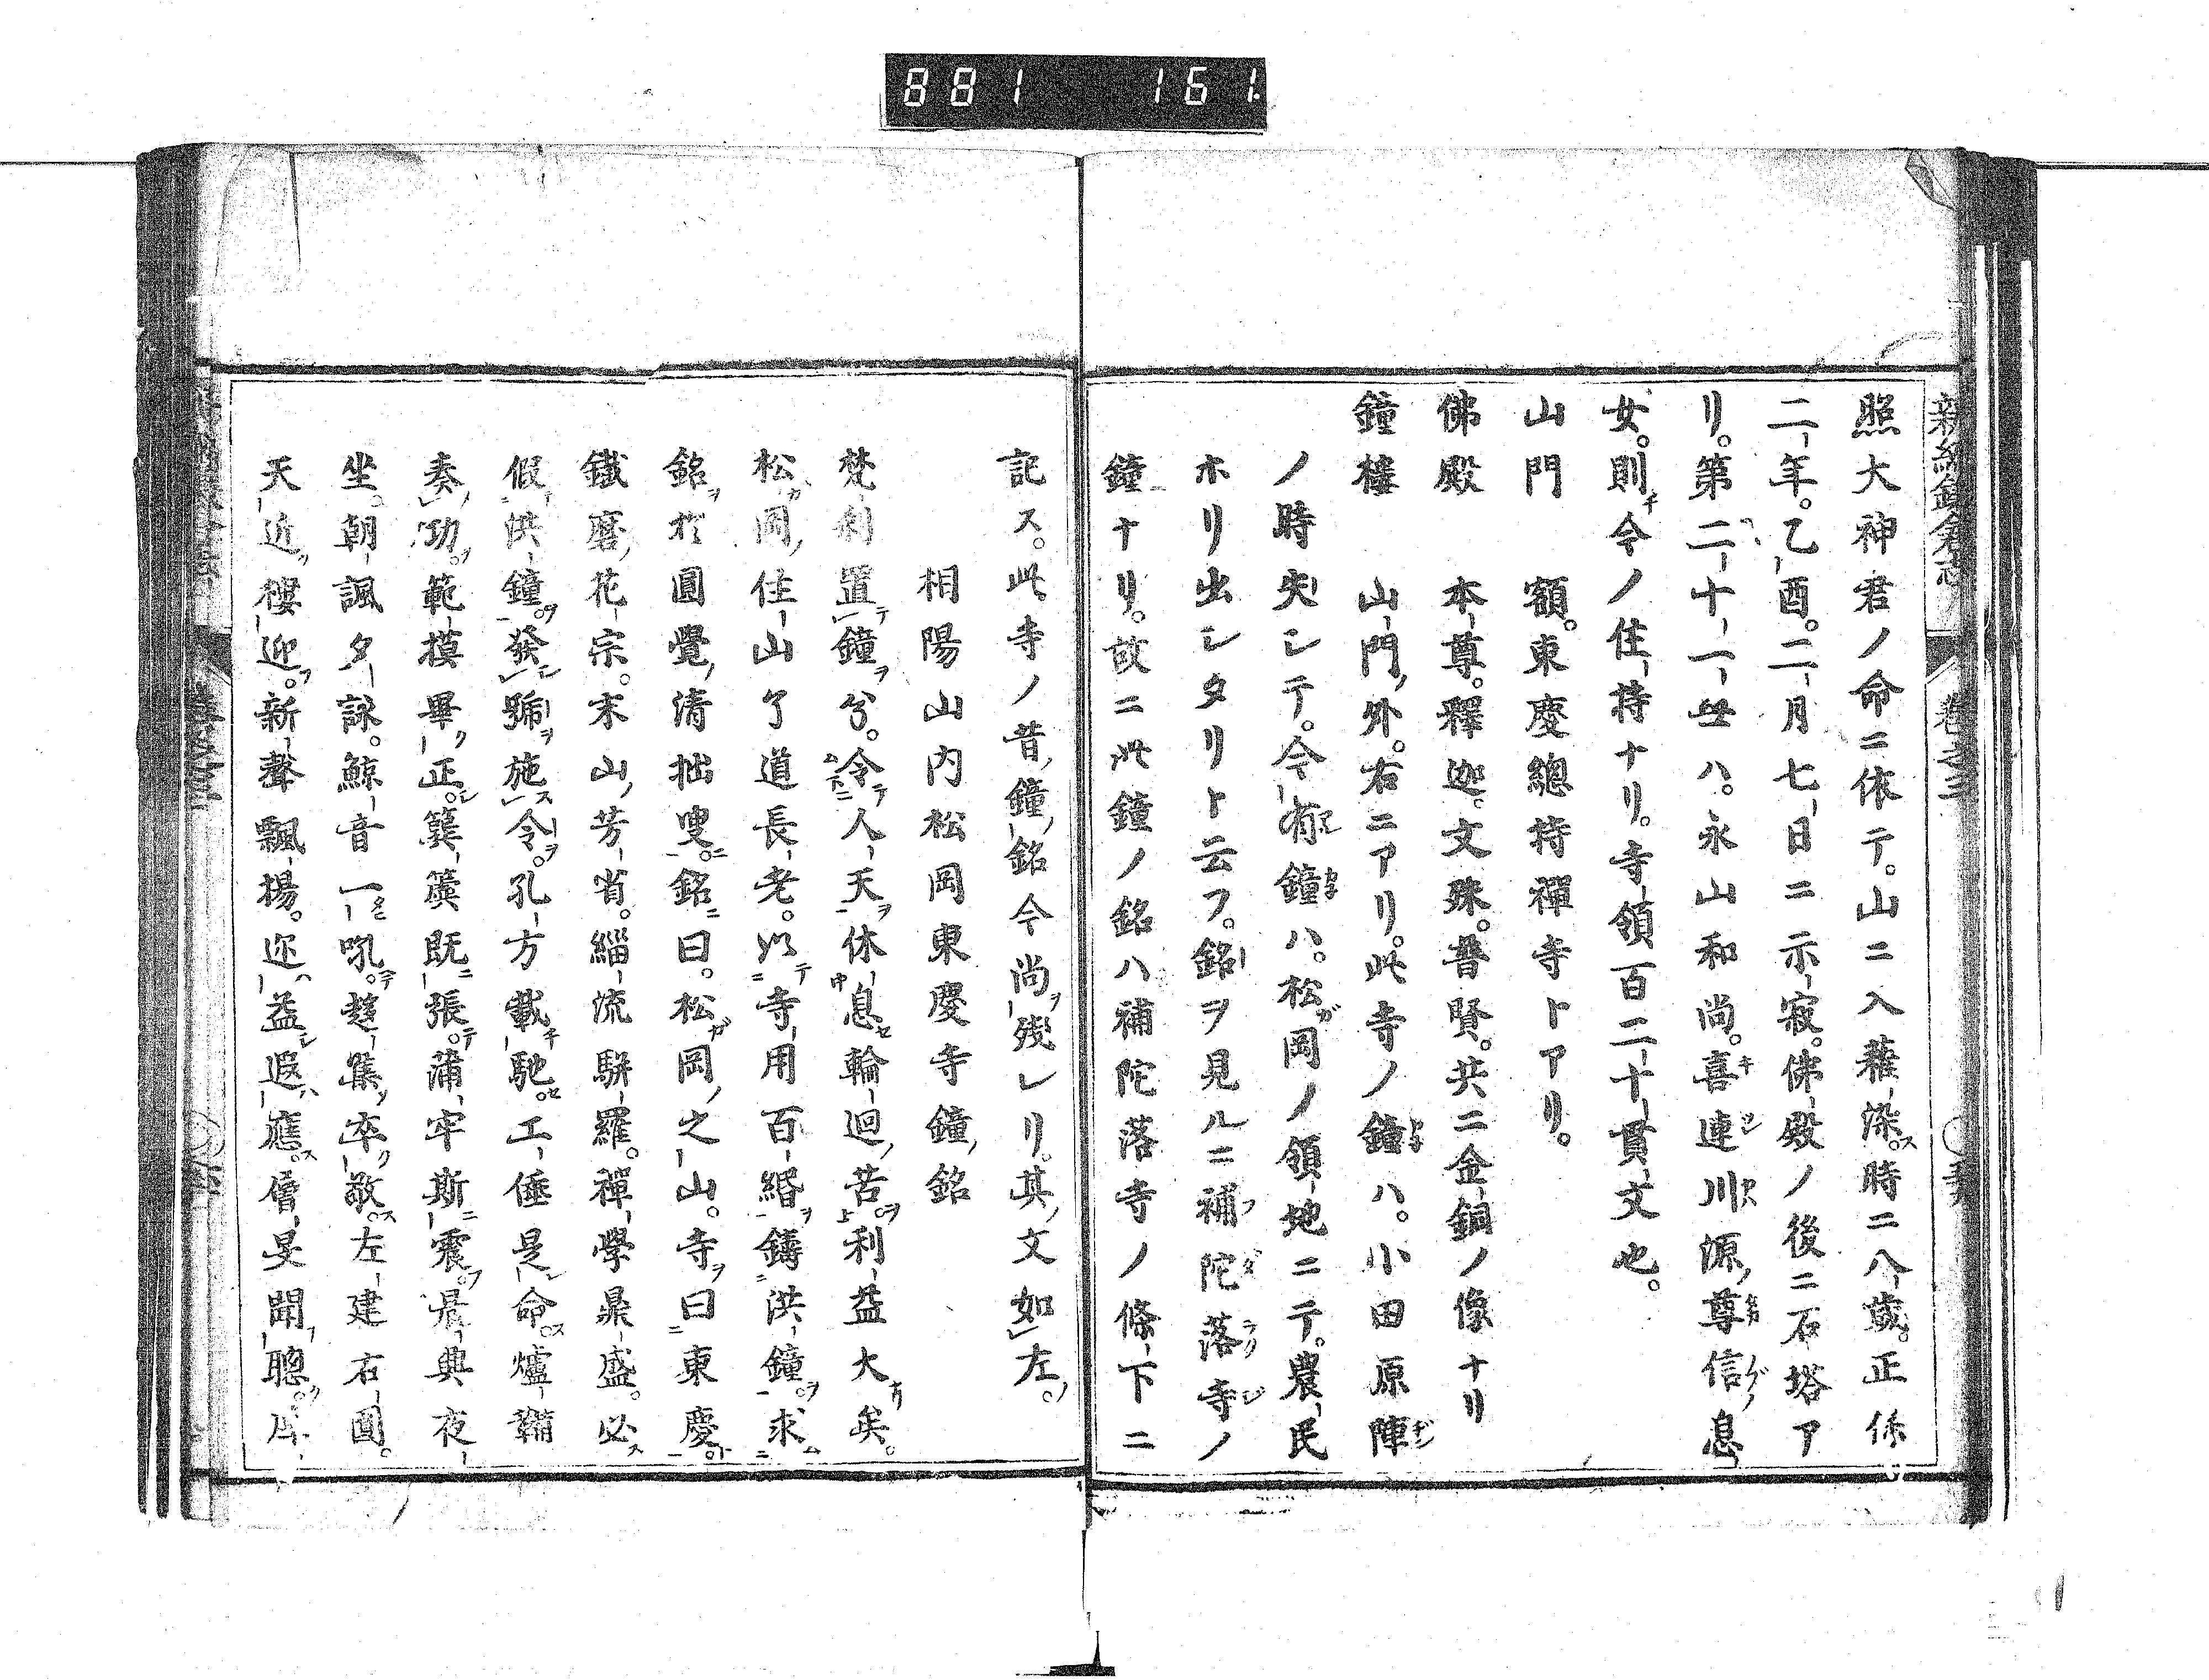 881 161
新編鎌倉志 卷之三
照大神君ノ命ニ依テ。山ニ入薙染ス。時ニ八歳。正保
二年。乙酉。二月七日ニ示寂。佛殿ノ後ニ石塔ア
リ。第二十一世ハ。永山和尚。喜連川源尊信息
女。則チ今ノ住持ナリ。寺領百二十貫文也。
山門 額。東慶總持禪寺トアリ。
佛殿 本尊。釋迦。文殊。普賢。共ニ金銅ノ像ナリ
鐘樓 山門外。右ニアリ。此寺ノ鐘ハ。小田原陣
ノ時失シテ。今有鐘ハ。松岡ノ領地ニテ。農民
ホリ出シタリト云フ。銘ヲ見ルニ補陀落寺ノ
鐘ナリ。故ニ此鐘ノ銘ハ補陀落寺ノ條下ニ
記ス。此寺ノ昔鐘銘今尚殘レリ。其文如左。
相陽山内松岡東慶寺鐘銘
梵刹置鐘兮。令人天休息輪迴苦利益大矣。
松岡住山了道長老。以寺用百緡鑄洪鐘。求
銘於圓覺清拙叟。銘曰。松岡之山。寺曰東慶。
鐵磨花宗。末山芳省。緇流駢羅。禪學鼎盛。必
假洪鐘。發號施令。孔方載馳。工倕是命。爐鞴
奏功。範摸畢正。簨簴既張。蒲牢斯震。晨典夜
坐。朝諷夕詠。鯨音一吼。趨集卒敬。左建右圓。
天近樓迎。新聲飄揚。迩益遐應。層旻聞聰。